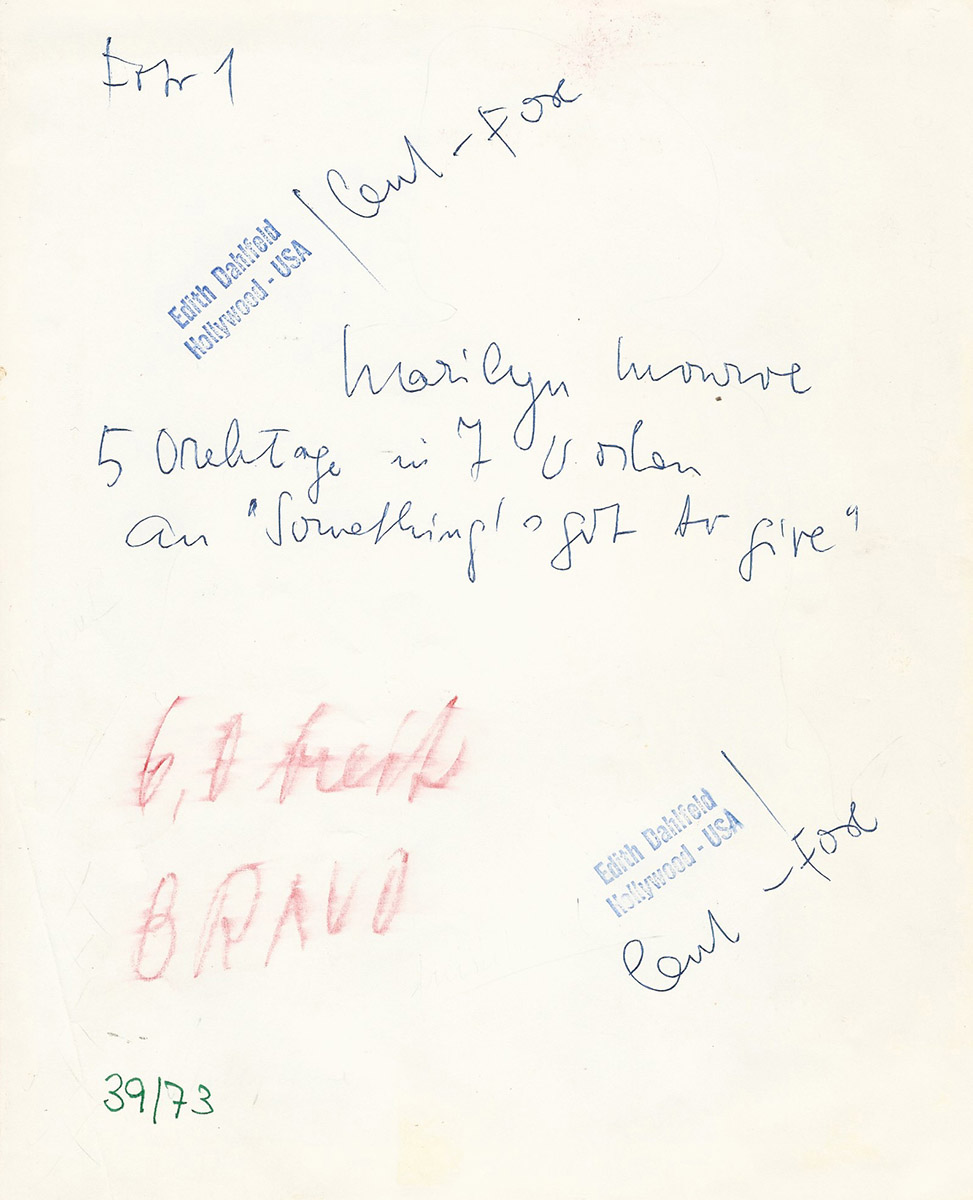 Foto 1
Edith Dahlfeld
Hollywood - USA
/ Cent - Fox
Marilyn Monroe
5 Drehtage in 7 Wochen
an "Something's got to give"
6,0 breit
BRAVO
Edith Dahlfeld
Hollywood - USA
/ Cent - Fox
39/73